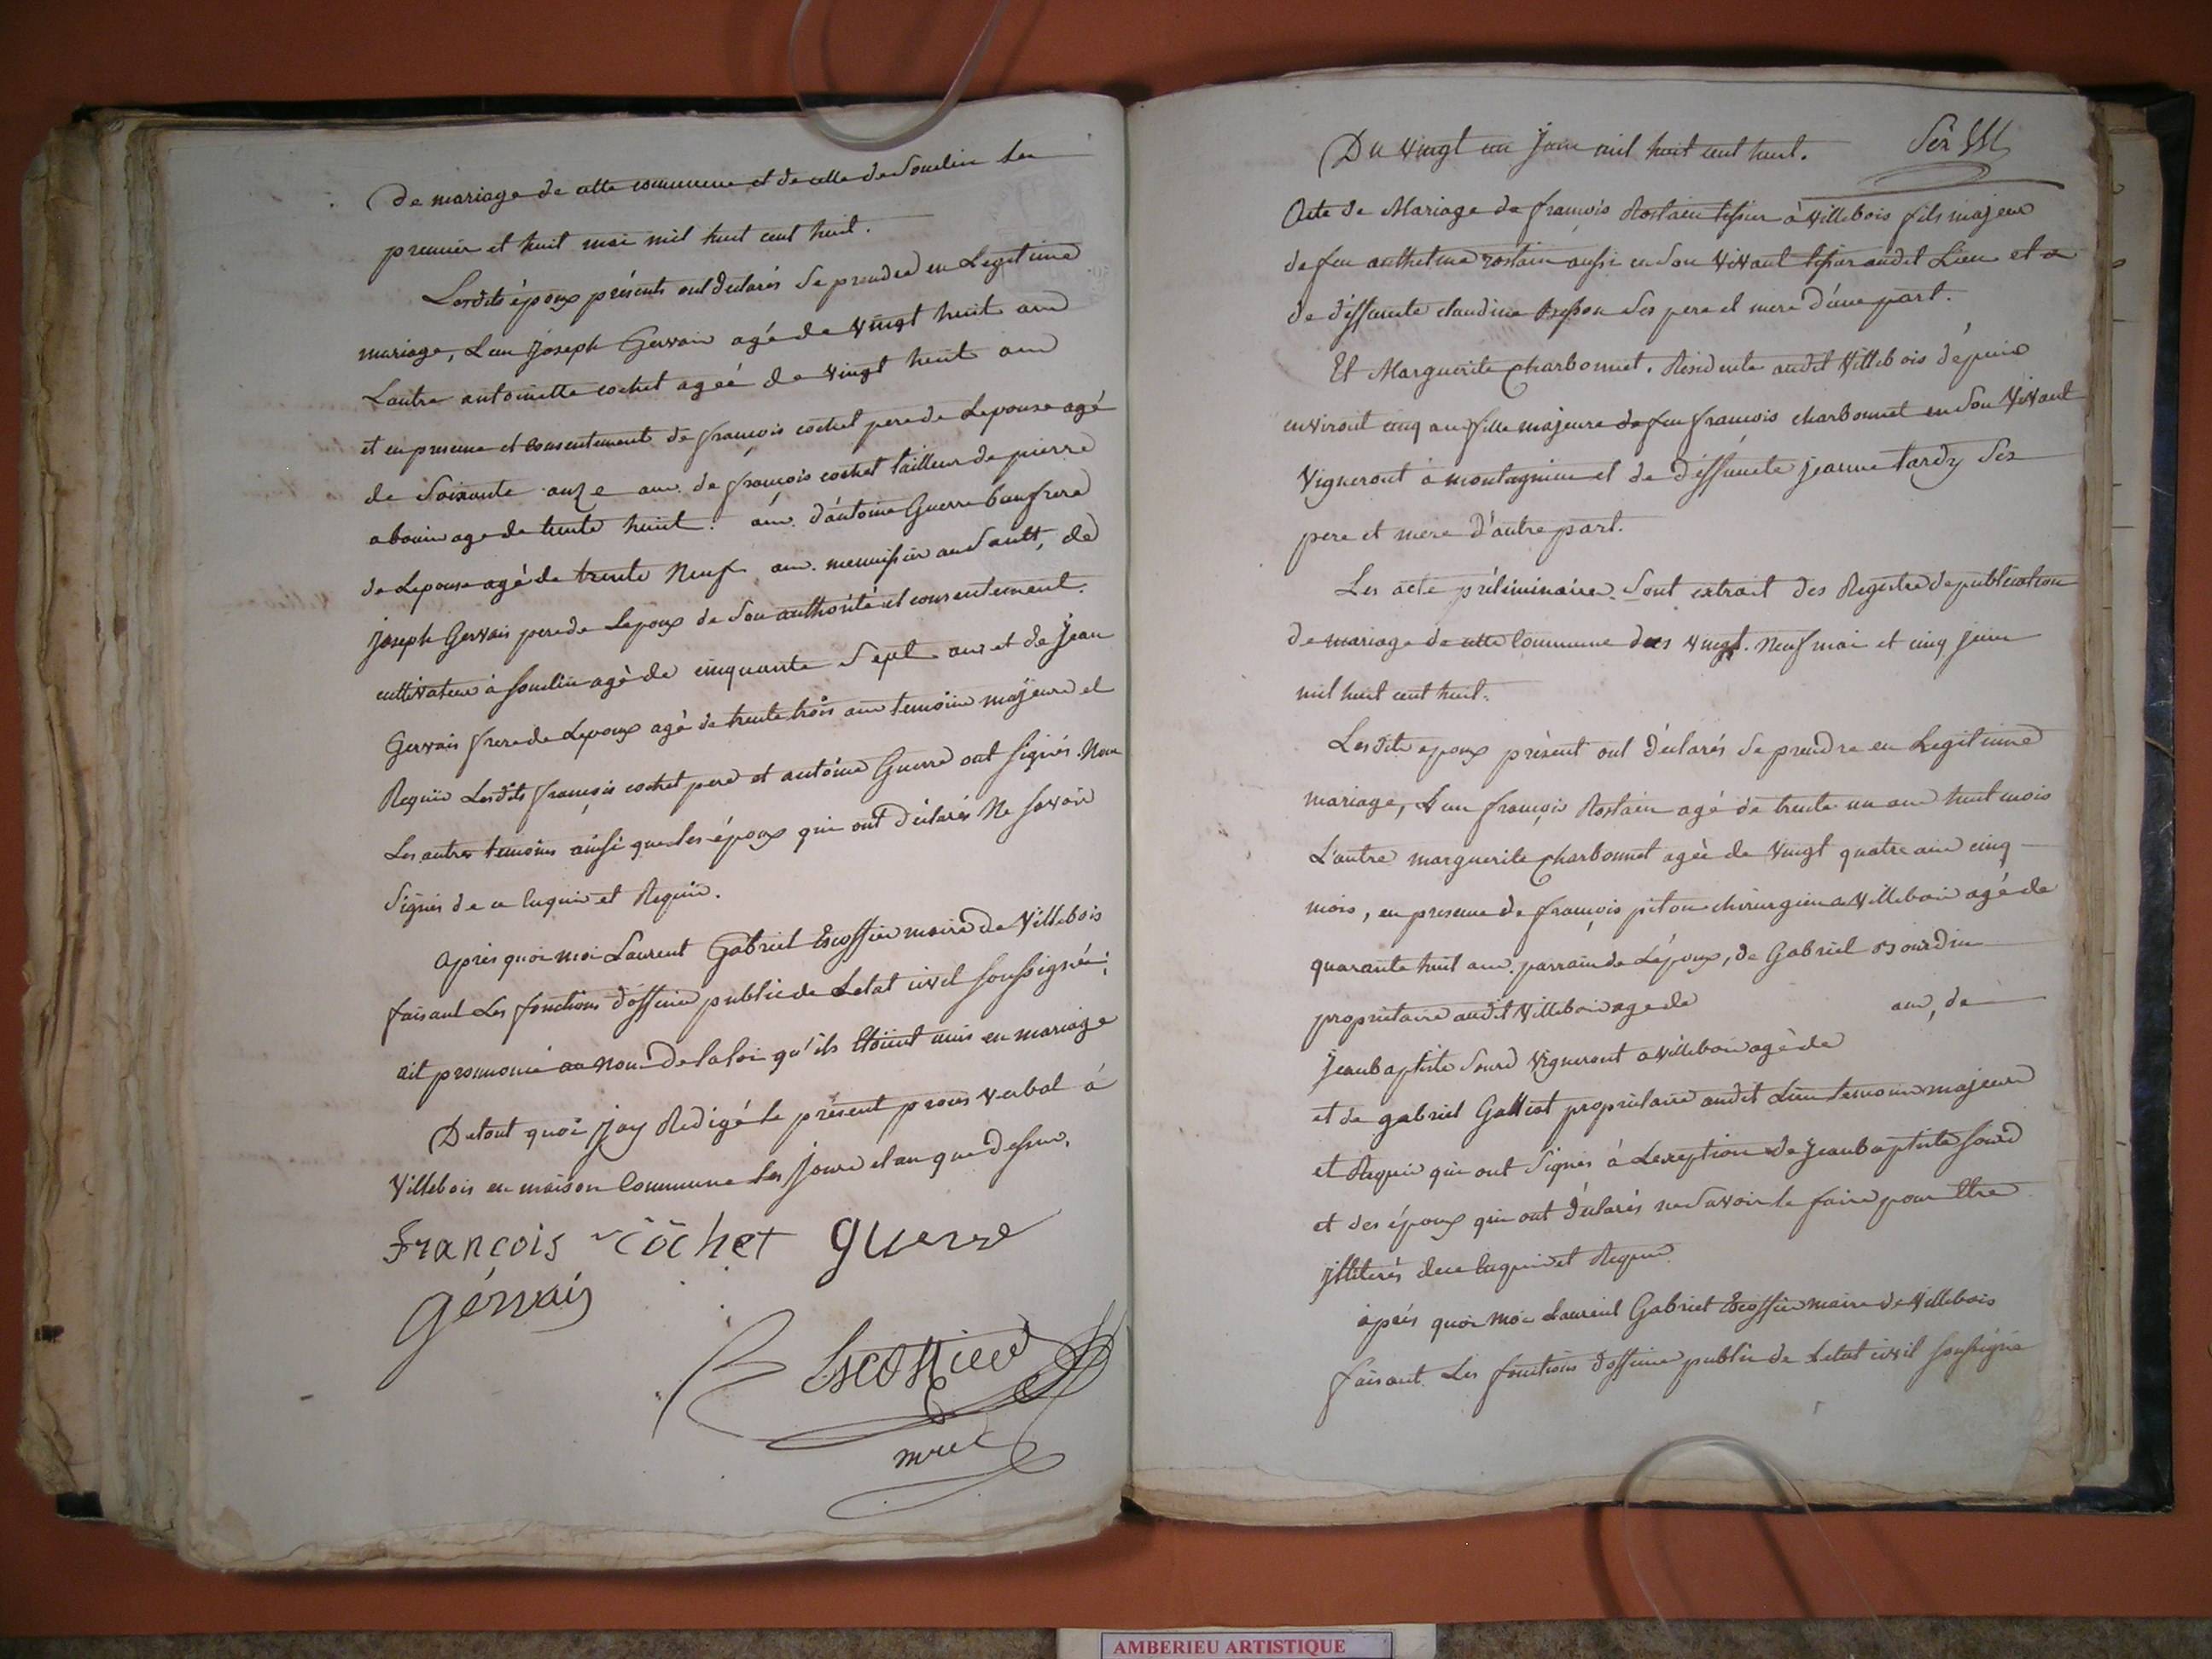 De mariage de cette commune et de celle de Souclin les
premier et huit mai mil huit cent huit.
Lesdits époux présents ont déclarés se prendre en Legitime
mariage, L'un Joseph Gervais agé de vingt huit ans
L'autre antoinette cochet ageé de vingt huit ans
et en presence et consentement de françois cochet pere de Lepouse agé
de soixante onze ans. de françois cochet tailleur de pierre
a bouis age de trente huit. ans. d'antoine Guerre baufrere
de Lepouse agé de trente Neuf ans. menuisier au Sault, de
joseph Gervais pere de Lepoux de son authorité et consentement.
cultivateur à souclin agé de cinquante Sept ans et de Jean
Gervais frere de Lepoux agé de trente trois ans temoins majeurs et
Requis Lesdits françois cochet pere et antoine Guerre ont signés. Non
Les autres temoins ainsi que les époux qui ont déclarés Ne savoir
Signer de ce enquis et Requis.
après quoi moi Laurent Gabriel Escoffier maire de Villebois
faisant Les fonctions d'officier public de Letat civil soussigné;
ait prononcé au nom de la loi qu'ils Etoient unis en mariage
De tout quoi jay Redigé le présent procès verbal à
Villebois en maison Commune les jours et an que dessus.
François cochet guerre
gérvais
Escoffier
mre
Du vingt un juin mil huit cent huit.
Acte de Mariage de françois Rostain tissier à Villebois fils majeur
de feu anthelme rostain aussi en son vivant tissier audit Lieu et
de déffuncte claudine Besson ses pere et mere d'une part.
Et Marguerite Charbonnet. Residente audit Villebois dépuis
environt cinq ans fille majeure de feu françois charbonnet en son Vivant
Vigneront à montagnieu et de déffuncte jeanne tardy Ses
pere et mere d'autre part.
Les acte préliminaires. Sont extrait des Registre de publication
de mariage de cette Commune des vingt. Neuf mai et cinq juin
mil huit cent huit.
Lesdits epoux présent ont déclarés se prendre en Legitime
mariage, L'un françois Rostain agé de trente un ans huit mois
L'autre marguerite Charbonnet agée de Vingt quatre ans cinq
mois, en presence de françois piton chirurgien a Villebois agé de
quarante huit ans. parrain de Lépoux, de Gabriel Bourdin
propriétaire audit Villebois age de ans, de
Jeanbaptiste Sourd Vigneront a villebois agé de
et de gabriel Galliot proprietaire audit Lieu temoins majeurs
et Requis qui ont Signés à Lexeption de Jeanbaptiste Sourd
et des époux qui ont déclarés ne Savoir le faire pour Etre
jlliterés de ce enquis et Requis
après quoi moi Laurent Gabriel Escoffier maire de Villebois
faisant. Les fonctions d'officier public de Letat civil soussigné
AMBERIEU ARTISTIQUE